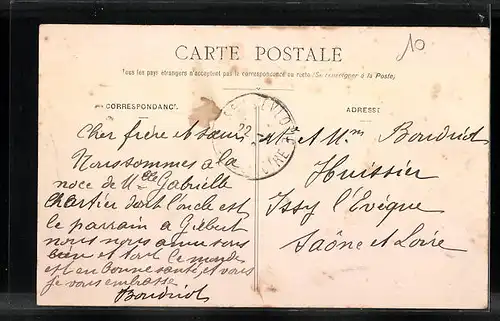 10
CARTE POSTALE
Tous les pays étrangers n'acceptent pas la correspondance au recto (Se renseigner à la Poste)
CORRESPONDANCE
ADRESSE
Cher frère et sœur
Nous sommes a la
noce de Mlle Gabrielle
Chartier dont l'oncle est
le parrain a Gilbert
nous nous amusons
bien et tout le monde
est en bonne santé, et vous
je vous embrasse
Boudriot
22
Mr et Mm Boudriot
Huissier
Issy l'Evêque
Saône et Loire